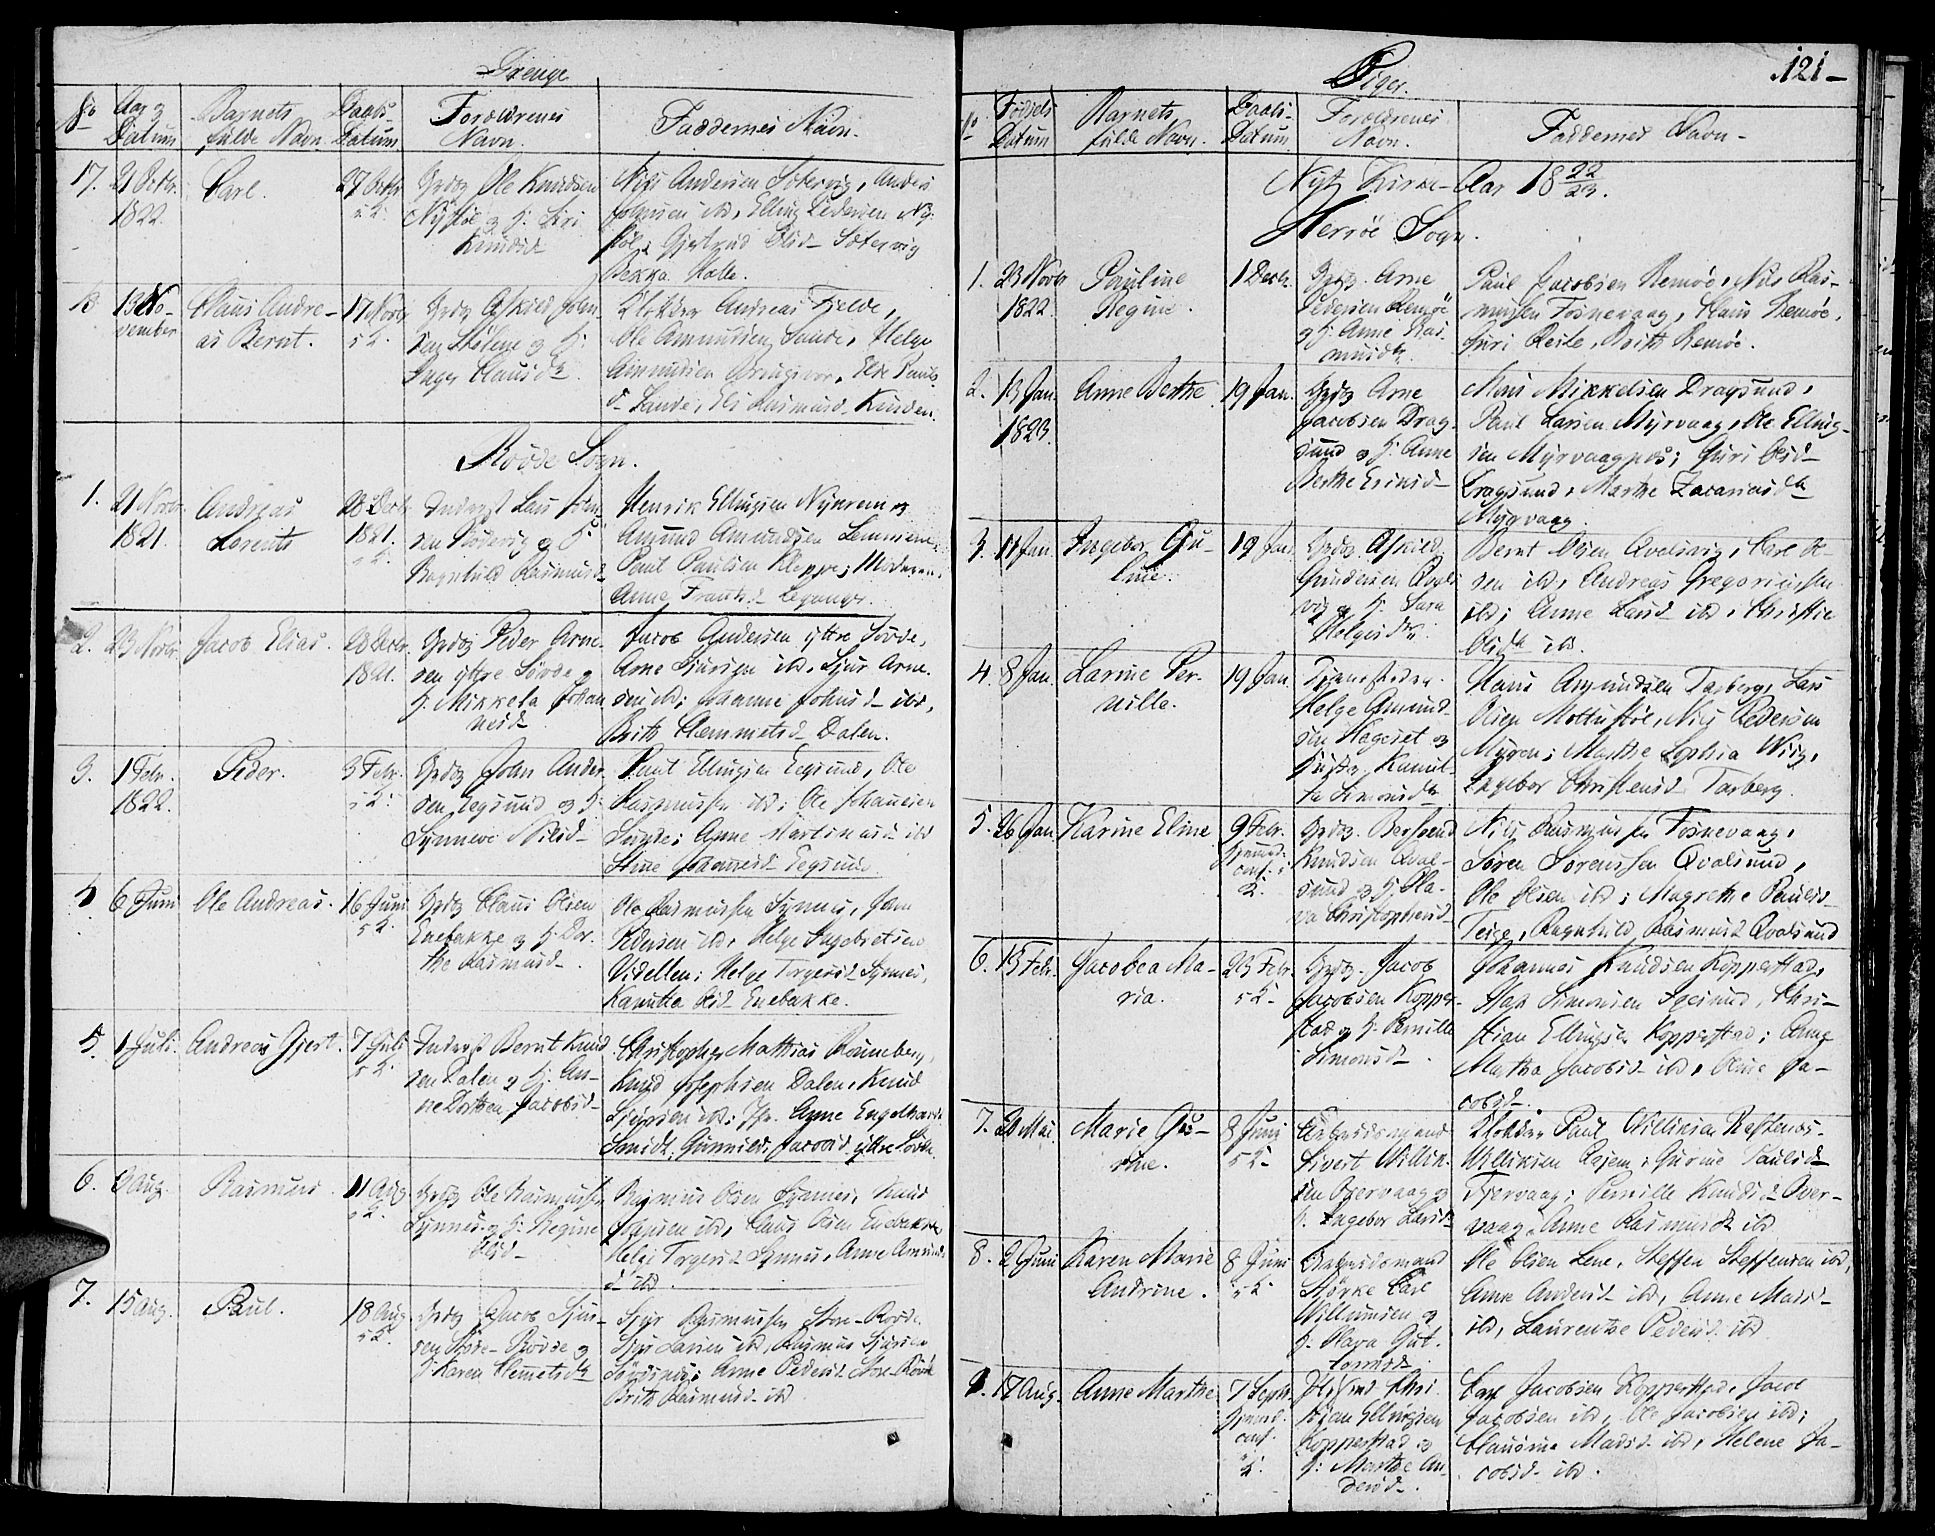 Drenge
No
Aar og Datum
Barnets fulde Navn
Daabs-Datum
Forældrenes Navn.
Faddernes Navn.
17.
21 Octbr 1822
Carl.
27 Octbr
Grdbr Ole Knudsen
Nystøl og H: Siri
Knudsd
Nils Andersen Sætervig, Anders
Johnsen ibd, Elling Pedersen Ny-
støl; Gjertrud Olsd Sætervig
Bekka
13 No-
vember
Claus Andre-
as Bernt.
17 Novbr
Grdbr Askild John
sen Stølene og H:
Inger Clausdr
Klokker Andreas Fjelde,
Ole Amundsen Sande, Helge
Amundsen
d Sande, Eli Rasmusd
Røvde Sogn.
1.
21 Novbr
1821.
Andreas
Lorents
26 Decbr
1821.
Indrst Lars
og H:
Ragnhild Rasmusd
Henrik Ellingsen
Amund Amundsen
Paul Paulsen Kleppe;
Anne
2.
23 Novbr
Jacob Elias.
26 Decbr
1821.
Grdbr Peder Arne-
sen yttre Søvde og
H: Mikkela Johan
nesd
Jacob Andersen yttre Søvde,
Arne Sjursen ibd, Sjur Arne-
sen ibd; Johnsd ibd,
Brith Clemmetsd Dalen.
3.
1 Febr.
1822.
Peder.
3 Febr.
Grdbr John Ander
sen Eegsund og H:
Synneve Nilsd
Paul Ellingsen Eegsund, Ole
Rasmussen ibd; Ole Johannesen
Sunde; Anne Martinusd ibd
Stine Johannesd Eegsund
4
6 Juni
Ole Andreas.
16 Juni
Grdbr Claus Olsen
Enebakke og H: Dor-
the Rasmusd
Ole Rasmussen Synnes, Jens
Pedersen ibd, Helge Ingebretsen
Videllen; Helge Torgersd Synnes,
Kanutta Olsd Enebakke.
5.
1 Juli.
Andreas Gjert.
7 Juli
Indrst Bernt Knud
sen Dalen og H: An-
ne Dorthea Jacobsd
Christopher Mathias Rønneberg,
Knud Josephsen Dalen, Knud
Sjursen ibd; Jfr. Anne Engelharda
Smidt, Gunnild Jacobsd yttre Søvde.
6.
9 Aug.
Rasmus.
11 Aug
Grdbr Ole Rasmussen
Synnes og H: Regine
Olsd
Rasmus Olsen Synnes, Knud
Johnsen ibd, Claus Olsen Enebakke
Helge Torgersd Synnes, Anne Amunds
d ibd.
7.
15 Aug.
Paul.
18 Aug
Grdbr Jacob Sjur-
sen Store-Røvde og
H: Karen Clemetsdr
Sjur Rasmussen Store-Røvde
Sjur Larsen ibd, Rasmus Sjursen
Anne Pedersd Store-Røvde
Brith Rasmusd ibd
Piger.
121-
No
Fødsels Datum
Barnets fulde Navn.
Daabs-Datum
Forældrenes Navn.
Faddernes Navn
Nyt Kirke-Aar 18 22/23.
Herrøe Sogn.
1.
23 Novbr
1822.
Pauline
Regine.
1 Decbr.
Grdbr. Arne
Pedersen Remøe
og H: Anne Ras
musdr.
Paul Jacobsen Remøe, Nils Ras-
mussen Fosnevaag, Claus Remøe,
Guri Reite, Brith Remøe.
2.
13 Jan.
1823.
Anne Berthe
19 Jan.
Grdbr Arne
Jacobsen Drag-
sund og H: Anne
Berthe Eriksd
Mons Mikkelsen Dragsund,
Paul Larsen Myrvaag, Ole Elling-
sen Myrvaagnes; Guri Olsd
Dragsund, Marthe Zacariasdr
Myrvaag.
3.
11 Jan.
Ingebor Gu-
line.
19 Jan.
Grdbr Askild
Gundersen Qvals
vig og H: Sara
Helgesdr
Bernt Olsen Qvalsvig, Carl Ol-
sen ibd, Andreas Gregoriussen
ibd; Anne Larsd ibd, Christie
Olsdr ibd.
4.
8 Jan.
Larine Per-
nille.
19 Jan.
Tjenestedr.
Helge Amund-
sen Hageset og
Knud Kamil-
la Simonsdr
Hans Amundsen Tarberg, Lars
Olsen Moltustøl, Nils Pedersen
Myren; Marthe Sophia Wiig,
Ingebor Christensd Tarberg.
5.
26 Jan
Karine Eline
9 Febr.
Hjemmed:
conf:
Grdbr. Bersvend
Knudsen Qval-
sund og H: Ola-
va Christophersd
Nils Rasmussen Fosnevaag,
Søren Sørenssen Qvalsund,
Ole Olsen ibd; Magrethe Paulsd
Teige, Ragnhild Rasmusd Qvalsund
6.
15 Febr.
Jacobea Ma-
ria.
23 Febr.
Grdbr. Jacob
Jacobsen Kopper-
stad og H: Pernille
Simonsd.
Johannes Knudsen Kopperstad,
Isak Simonsen Igesund, Chri-
stian Ellingsen Kopperstad; Anne
Martha Jacobsd ibd, Oline Ja-
cobsd.
7.
20 Mai
Marie Gu-
rine.
8 Juni
Arbeidsmand
Sivert Willik-
sen Overvaag og
H: Ingebor Larsdr
Klokker Paul Williksen Røstenes-
Williksen Aasen; Gurine Paulsdr
Tjervaag; Pernille Knudsd Over-
vaag, Anne Rasmusdr ibd
8.
2 Juni
Karen Marie
Andrine.
8 Juni
Arbeidsmand
Mørke Carl
Willumsen og
H: Olava Gut-
tormsd
Ole Olsen Lene, Steffen Steffensen ibd,
Anne Andersd ibd, Anne Madsd
ibd, Laurentze Pedersd ibd
9.
17 Aug.
Anne Marthe
7 Septbr.
Hjemmed.
conf.
Chri-
stian Ellingsen
Kopperstad og
H: Marthe An-
dersd.
Carl Jacobsen Kopperstad, Jacob
Jacobsen ibd, Ole Jacobsen ibd;
Clausine Madsd ibd, Helene Ja-
cobsd ibd.